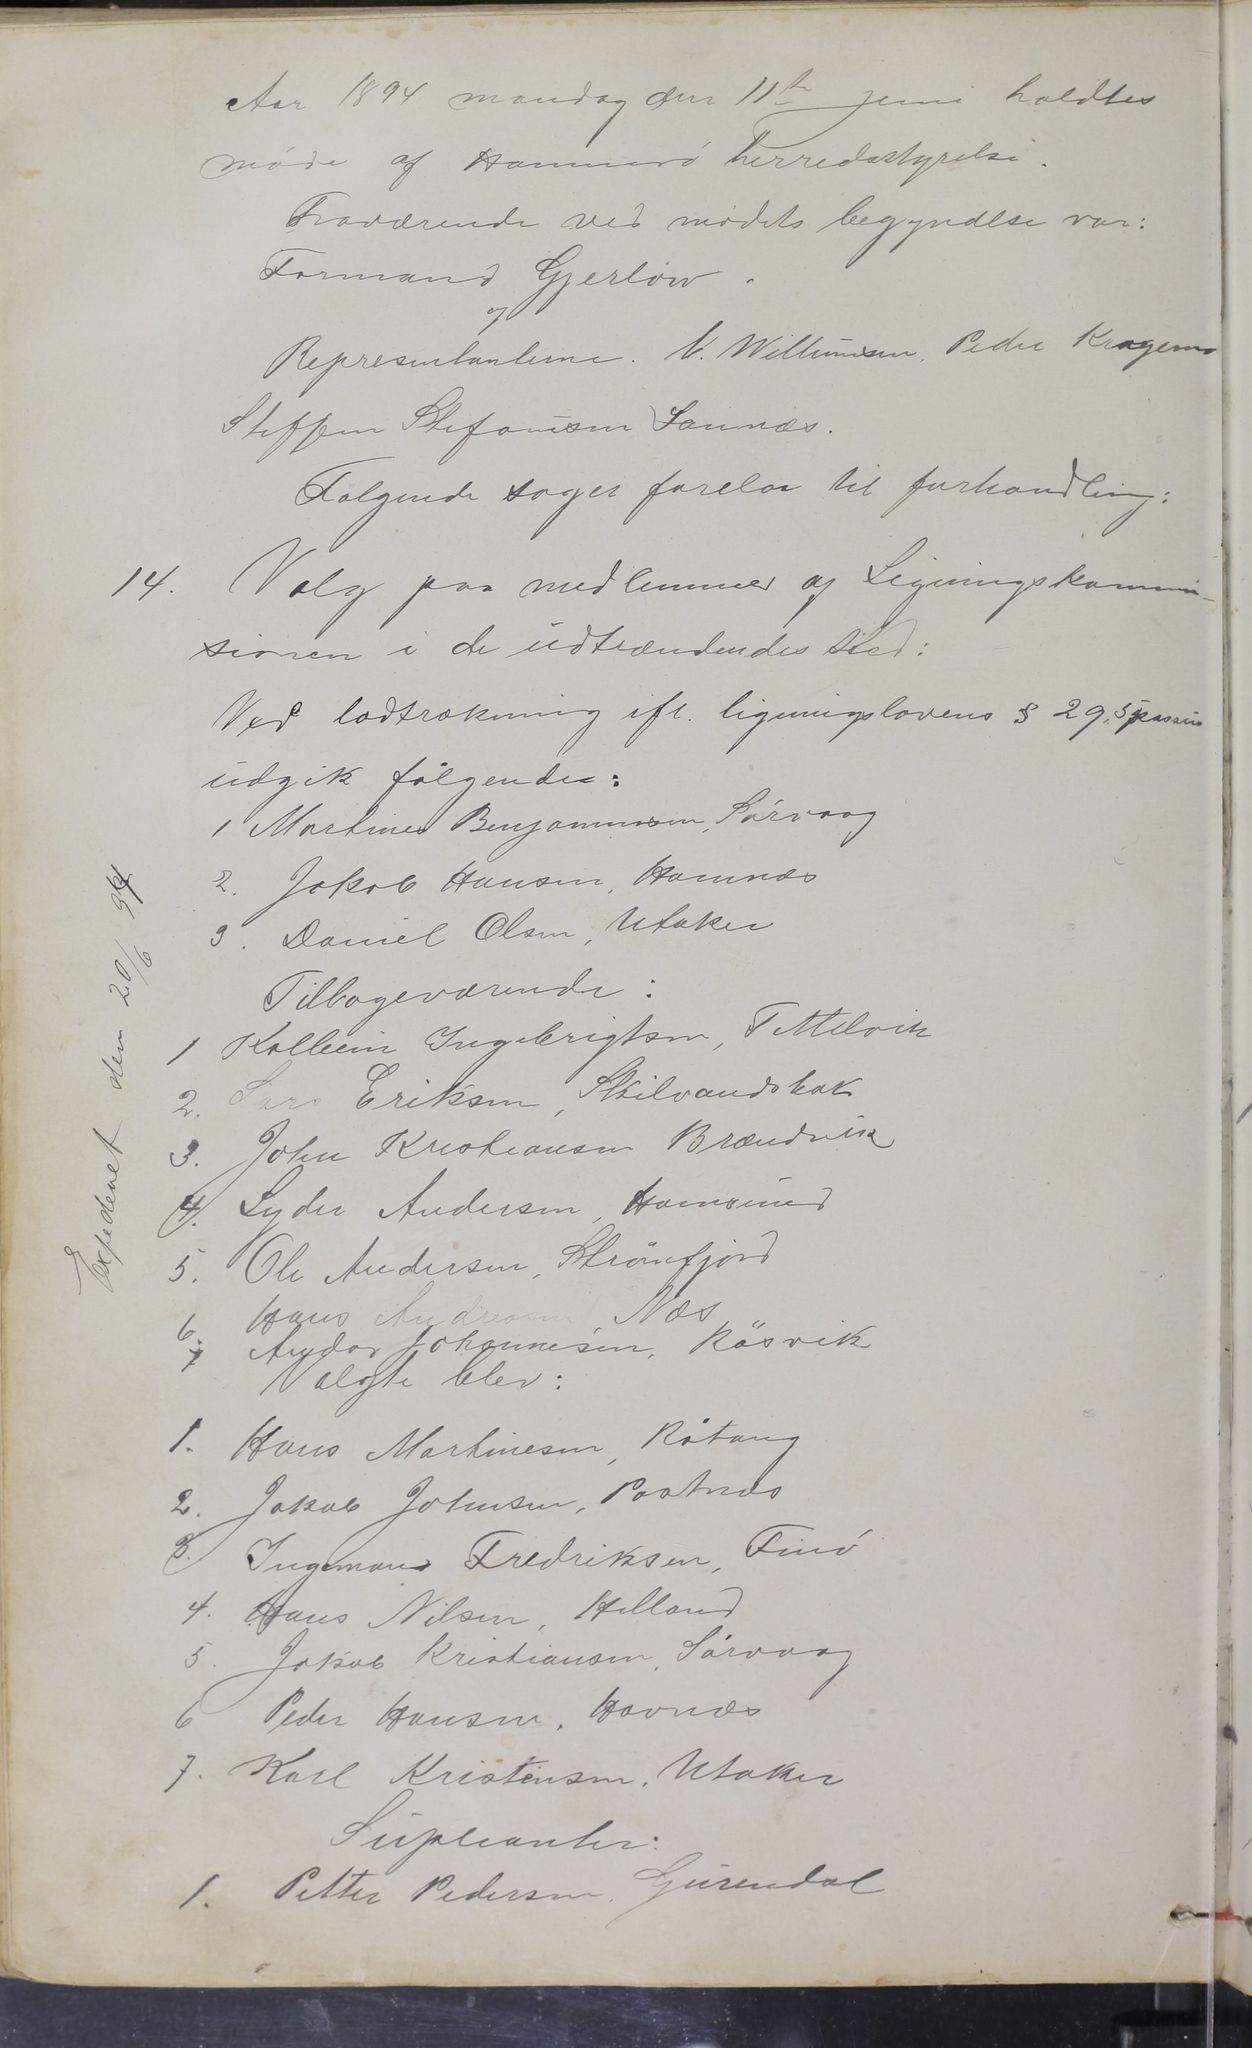 Aar 1894 mandag den 11te juni holdtes
møde af Hammerø herredsstyrelse.
Fraværende ved mødets begyndelse var:
Formand Gjerløw.
og
Representanterne. V. Willumsen, Peder Kragemo
Steffen Stefansen Sannæs.
Følgende sager forelaa til forhandling:
14. Valg paa medlemmer af Ligningskommis-
sionen i de udtrædendes sted:
Ved lodtrækning ifl. ligningslovens § 29, 5 passus
udgik følgende:
1 Martines Benjaminsen, Sørvaag
2. Jakob Hansen, Hamnæs
3. Daniel Olsen, Utaker
Tilbageværende:
1 Ingebrigtsen, Tittelvik
2. Lars Eriksen, Skilvandsbak
3. John Kristiansen Brændvik
4. Lyder Andersen, Hamsund
5. Ole Andersen, Strømfjord
6. Hans Andreasen, Næs
7 Andor Johannesen, Røsvik
Valgte blev:
1. Hans Martinesen, Røtang
2. Jakob Johnsen, Postnæs
3. Ingemans Fredriksen, Finø
4. Hans Nilsen, Helland
5. Jakob Kristiansen, Sørvaag
6 Peder Hansen, Havnæs
7. Karl Kristensen, Utaker
Supleanter:
1. Petter Pedersen,
Expederet den 20/6 94